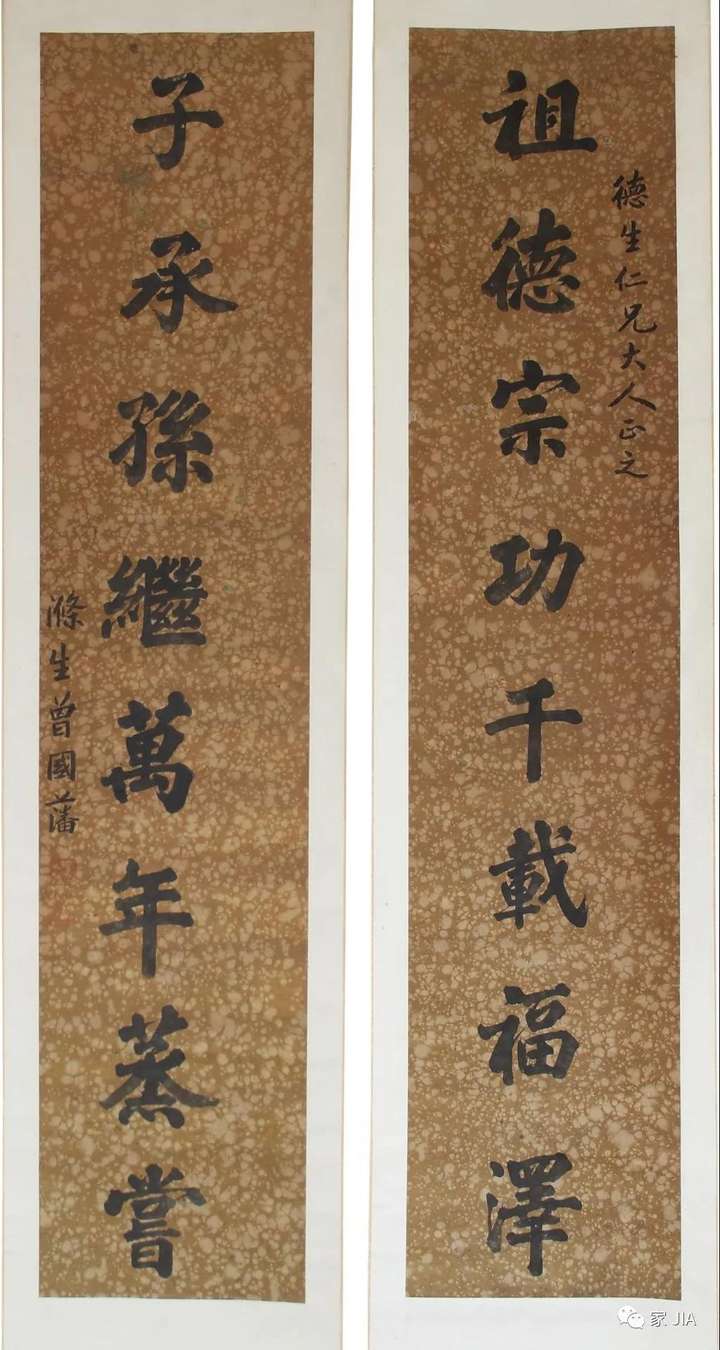 德生仁兄大人正之
祖德宗功千載福澤
子承孫繼萬年蒸嘗
滌生曾國藩
家 JIA